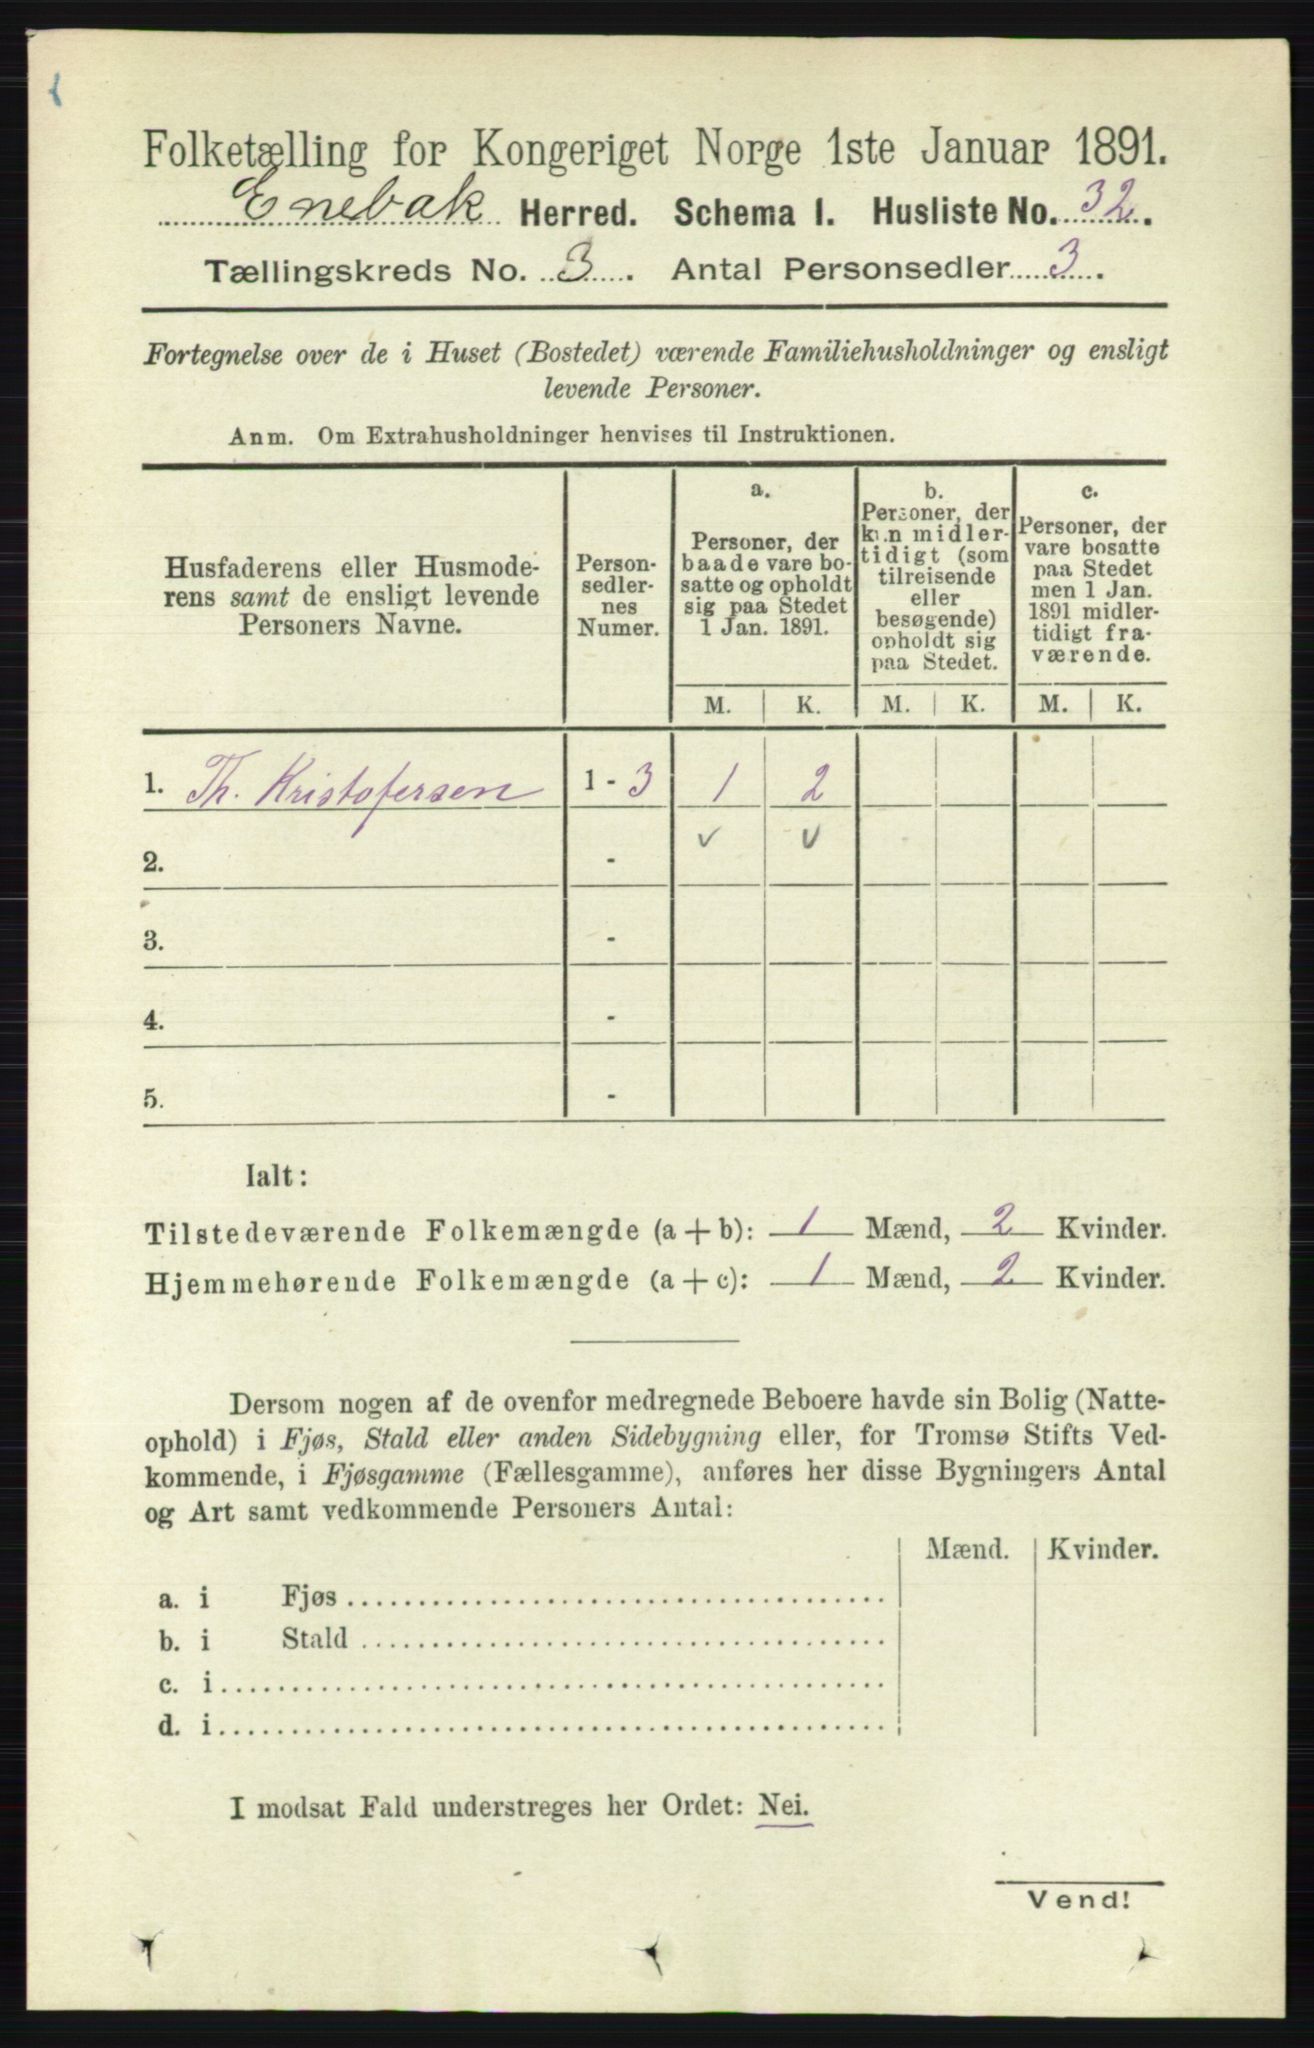 Folketælling for Kongeriget Norge 1ste Januar 1891.
Enebak Herred. Schema 1. Husliste No. 32.
Tællingskreds No. 3. Antal Personsedler 3.
Fortegnelse over de i Huset (Bostedet) værende Familiehusholdninger og ensligt
levende Personer.
Anm. Om Extrahusholdninger henvises til Instruktionen.
Husfaderens eller Husmode-
rens samt de ensligt levende
Personers Navne.
Person-
sedler-
nes
Numer.
a.
Personer, der
baade vare bo-
satte og opholdt
sig paa Stedet
1 Jan. 1891.
b.
Personer, der
kun midler-
tidigt (som
tilreisende
eller
besøgende)
opholdt sig
paa Stedet.
c.
Personer, der
vare bosatte
paa Stedet
men 1 Jan.
1891 midler-
tidigt fra-
værende.
M. K. M. K. M. K.
1. Th. Kristofersen 1 - 3 1 2
2. - v v
3. -
4. -
5. -
Ialt:
Tilstedeværende Folkemængde (a + b): 1 Mænd, 2 Kvinder.
Hjemmehørende Folkemængde (a + c): 1 Mænd, 2 Kvinder.
Dersom nogen af de ovenfor medregnede Beboere havde sin Bolig (Natte-
ophold) i Fjøs, Stald eller anden Sidebygning eller, for Tromsø Stifts Ved-
kommende, i Fjøsgamme (Fællesgamme), anføres her disse Bygningers Antal
og Art samt vedkommende Personers Antal:
Mænd. Kvinder.
a. i Fjøs
b. i Stald
c. i
d. i
I modsat Fald understreges her Ordet: Nei.
Vend!